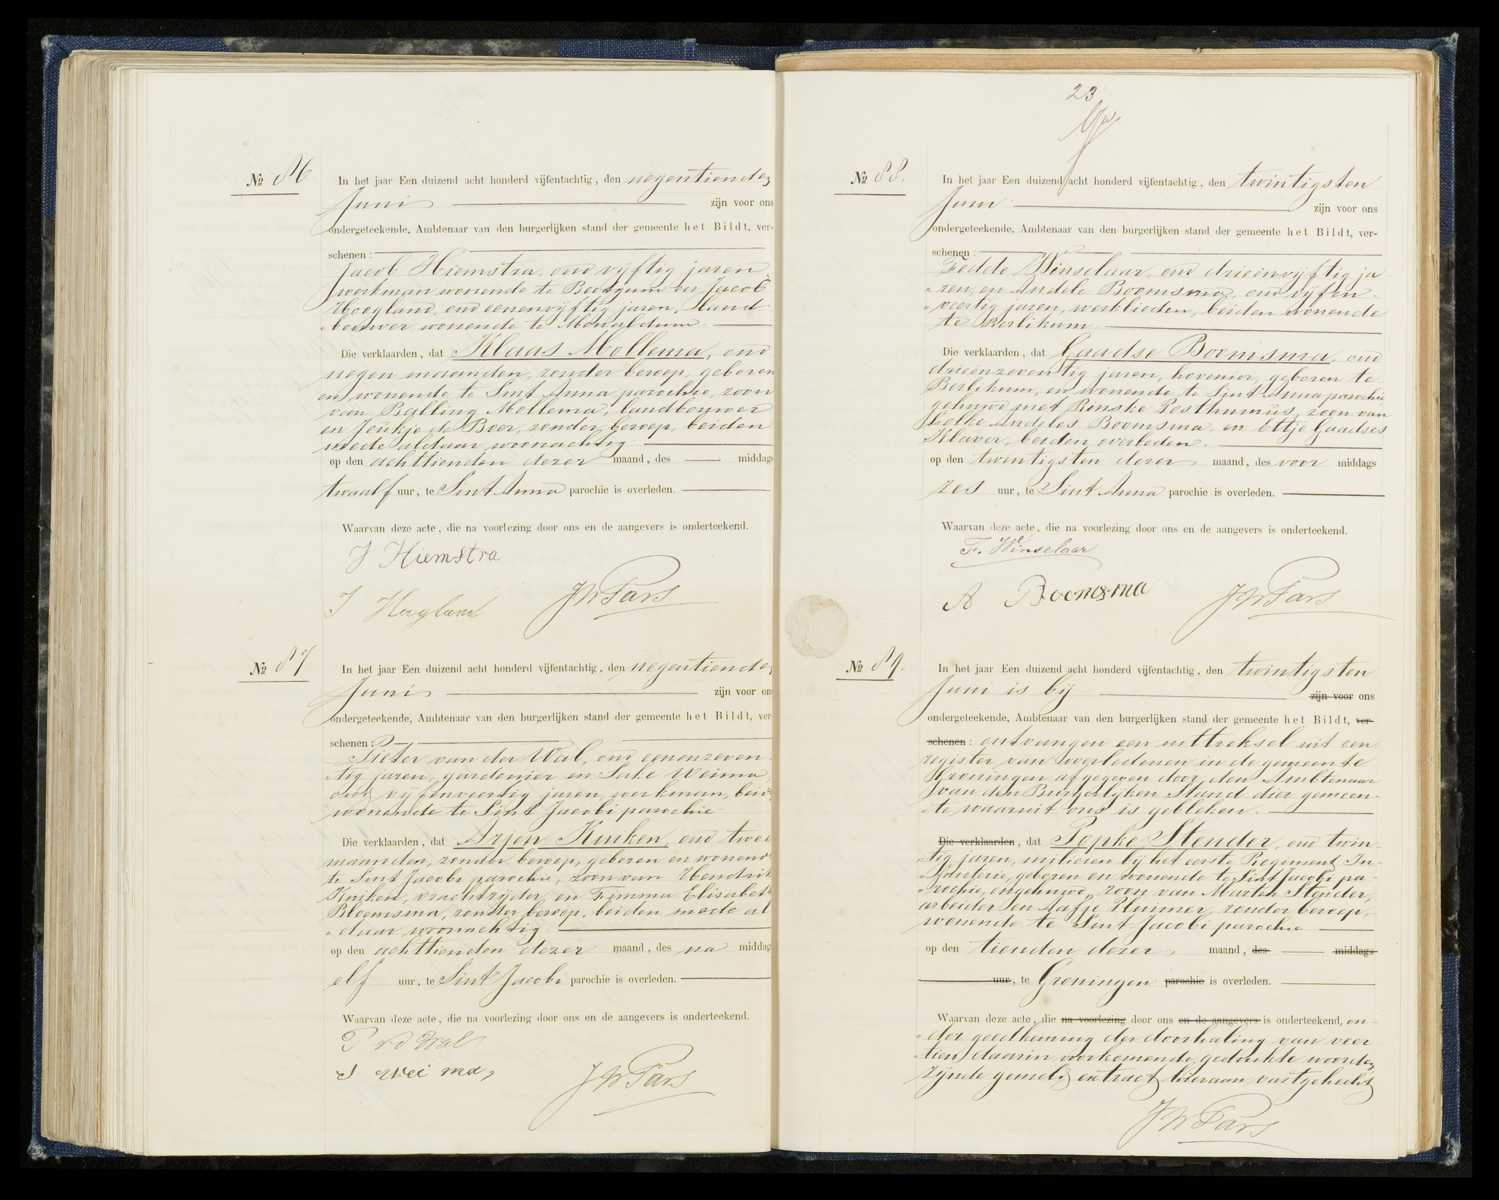 No 86
In het jaar Een duizend acht honderd vijfentachtig, den negentienden
Juni zijn voor ons
ondergeteekende, Ambtenaar van den burgerlijken stand der gemeente het Bildt, ver-
schenen:
Jacob Hiemstra, oud vyftig jaren
werkman wonende te Beetgum en Jacob
Hoogland, oud eenenvyftig jaren, land
bouwer wonende te Menaldum.
Die verklaarden, dat Klaas Mollema, oud
negen maanden, zonder beroep, geboren
en wonende te Sint Anna parochie, zoon
van Mollema, landbouwer
en Joukje de Boer, zonder beroep, beiden
mede aldaar woonachtig
op den achttienden dezer maand, des middags
twaalf uur, te Sint Anna parochie is overleden.
Waarvan deze acte, die na voorlezing door ons en de aangevers is onderteekend.
J Hiemstra
J Hoogland
JW Pars
No 87
In het jaar Een duizend acht honderd vijfentachtig, den negentienden
Juni zijn voor ons
ondergeteekende, Ambtenaar van den burgerlijken stand der gemeente het Bildt, ver
schenen:
Pieter van der Wal, oud eenenzeven
tig jaren, gardenier en Weima
oud vyfenveertig jaren, werkman, beide
wonende te Sint Jacobi parochie
Die verklaarden, dat Arjen Kuiken, oud twee
maanden, zonder beroep, geboren en wonend
te Sint Jacobi parochie, zoon van Hendrik
Kuiken, vrachtryder, en Fimma Elisabeth
Bloemsma, zonder beroep, beiden mede al
daar woonachtig
op den achttienden dezer maand, des na middags
elf uur, te Sint Jacobi parochie is overleden.
Waarvan deze acte, die na voorlezing door ons en de aangevers is onderteekend.
P vd Wal
S Wei ma,
JW Pars
23
No 88.
In het jaar Een duizend acht honderd vijfentachtig, den twintigsten
Juni zijn voor ons
ondergeteekende, Ambtenaar van den burgerlijken stand der gemeente het Bildt, ver-
schenen:
Fedde Winselaar, oud drieënvyftig ja
ren, en Andele Boomsma, oud vyfen
veertig jaren, werklieden, beiden wonende
te Berlikum.
Die verklaarden, dat Gaadse Boomsma, oud
drieënzeventig jaren, hovenier, geboren te
Berlikum, en wonende te Sint Anna parochie
gehuwd met Rinske Posthumus, zoon van
Andeles Boomsma en Ettje Gaadses
Klaver, beiden overleden.
op den twintigsten dezer maand, des voor middags
zes uur, te Sint Anna parochie is overleden.
Waarvan deze acte, die na voorlezing door ons en de aangevers is onderteekend.
F. Winselaar
A Boomsma
JW Pars
No 89.
In het jaar Een duizend acht honderd vijfentachtig, den twintigsten
Juni is by zijn voor ons
ondergeteekende, Ambtenaar van den burgerlijken stand der gemeente het Bildt, ver-
schenen: ontvangen een uittreksel uit een
register van overledenen in de gemeente
Groningen afgegeven door den Ambtenaar
van den Burgerlyken Stand dier gemeen
te waaruit ons is gebleken.
Die verklaarden, dat Popke Stender, oud twin
tig jaren, milicien by het eerste Regement In
fanterie, geboren en wonende te Sint Jacobi pa
rochie, ongehuwd, zoon van Marten Stender,
arbeider en Aafje Kuiner, zonder beroep,
wonende te Sint Jacobi parochie
op den tienden dezer maand, des middags
uur, te Groningen parochie is overleden.
Waarvan deze acte, die na voorlezing door ons en de aangevers is onderteekend, on
der goedkeuring der doorhaling van veer
tien daarin voorkomende gedrukte woorden
zynde gemeld extract hieraan vastgehecht
JW Pars